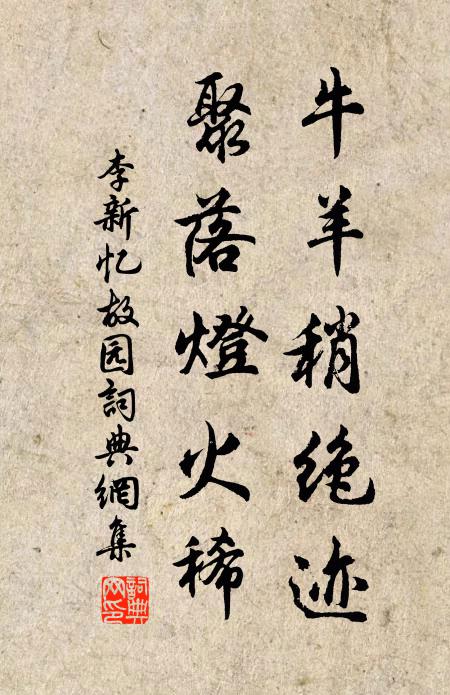 牛羊稍绝迹
聚落燈火稀
李新忆故园詞典網集
詞典